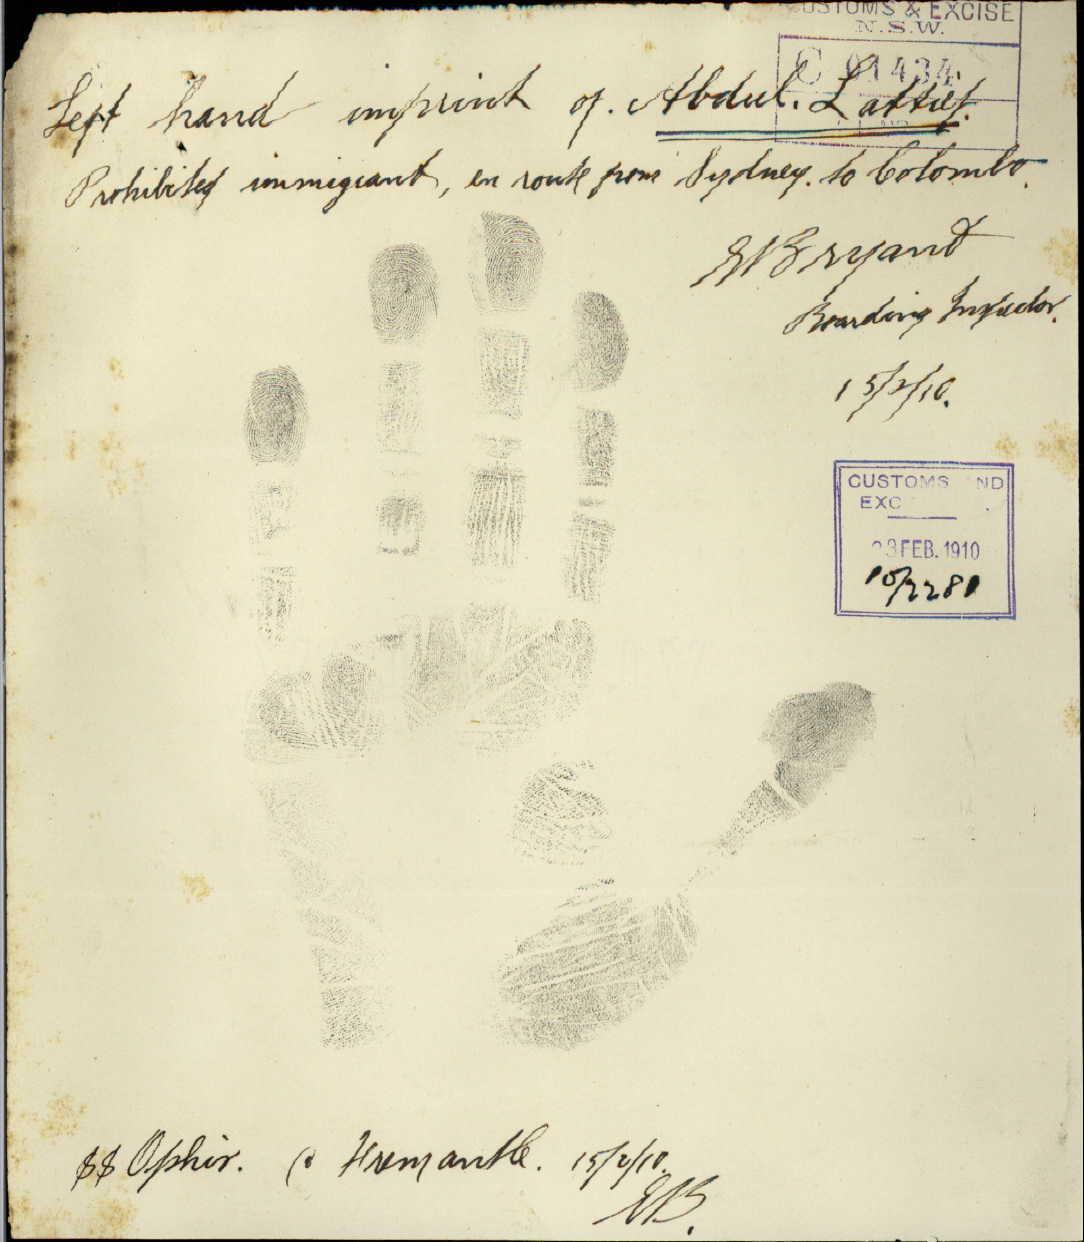 CUSTOMS & EXCISE
N.S.W.
C 01434
Left hand imprint of. Abdul. Lattief.
Prohibited immigrant, en route from Sydney. to Colombo.
Bryant
Boarding Inspector.
15/2/10.
CUSTOMS ND
EXC
3 FEB. 1910
10/2281
SS Ophir. @ Fremantle. 15/2/10.
EB.